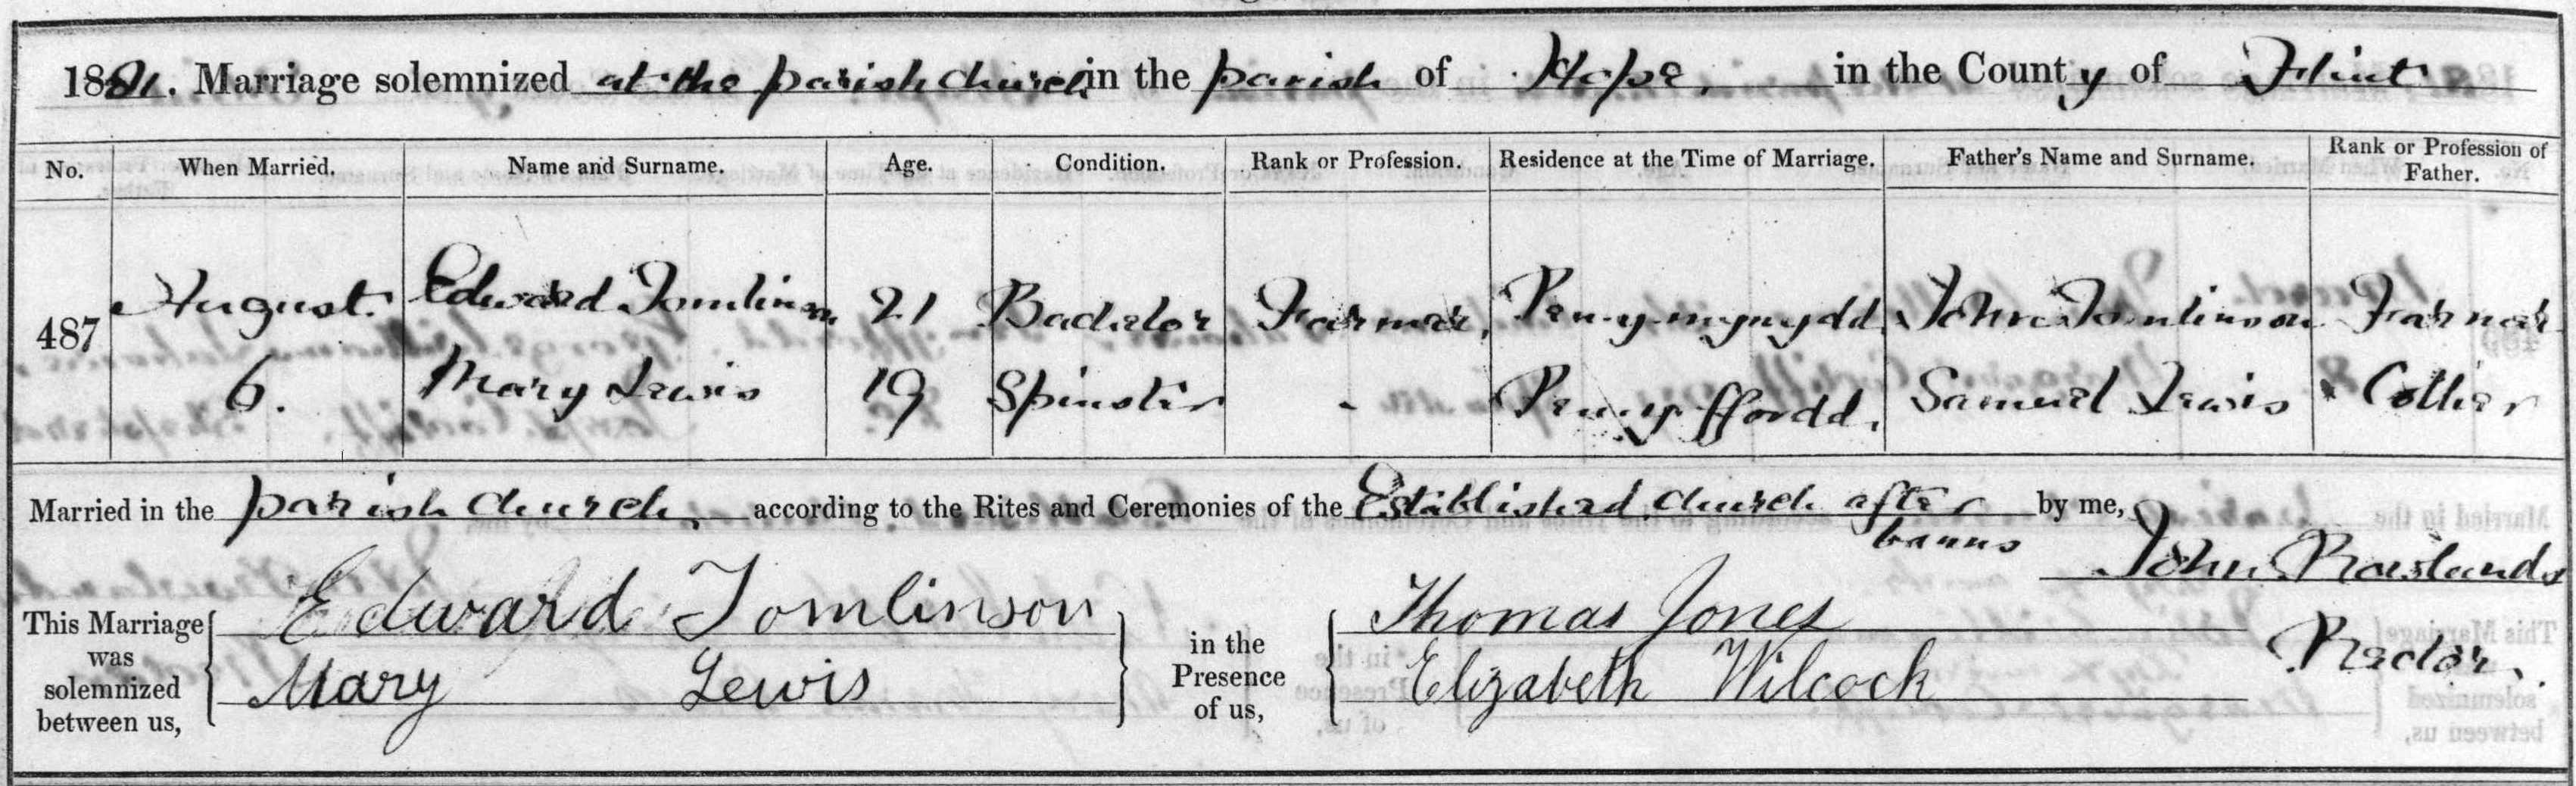 1881. Marriage solemnized at the parish church in the parish of Hope, in the County of Flint
No. When Married. Name and Surname. Age. Condition. Rank or Profession. Residence at the Time of Marriage. Father's Name and Surname. Rank or Profession of Father.
487 August 6. Edward Tomlinson 21 Bachelor Farmer, Pen-y-mynydd. John Tomlinson Farmer
Mary Lewis 19 Spinster - Pen-y-ffordd. Samuel Lewis Collier
Married in the parish church, according to the Rites and Ceremonies of the Established church after banns by me,
John Rowlands
Rector.
This Marriage was solemnized between us,
Edward Tomlinson
Mary Lewis
in the Presence of us,
Thomas Jones
Elizabeth Wilcock